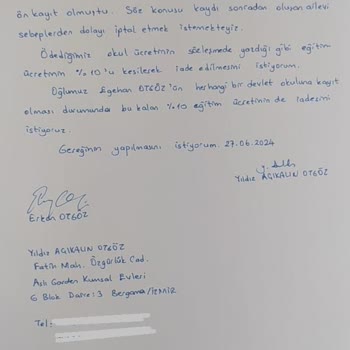 ön kayıt olmuştu. Söz konusu kaydı sonradan oluşan ailevi
sebeplerden dolayı iptal etmek istemekteyiz.
Ödediğimiz okul ücretinin sözleşmede yazdığı gibi eğitim
ücretinin %10'u kesilerek iade edilmesini istiyorum.
Oğlumuz Egehan OTGÖZ'ün herhangi bir devlet okuluna kayıt
olması durumunda bu kalan %10 eğitim ücretinin de iadesini
istiyoruz.
Gereğinin yapılmasını istiyorum. 27.06.2024
Yıldız AÇIKALIN OTGÖZ
Erkan OTGÖZ
Yıldız AÇIKALIN OTGÖZ
Fatih Mah. Özgürlük Cad.
Aslı Garden Kumsal Evleri
G Blok Daire: 3 Bergama/İZMİR
Tel: